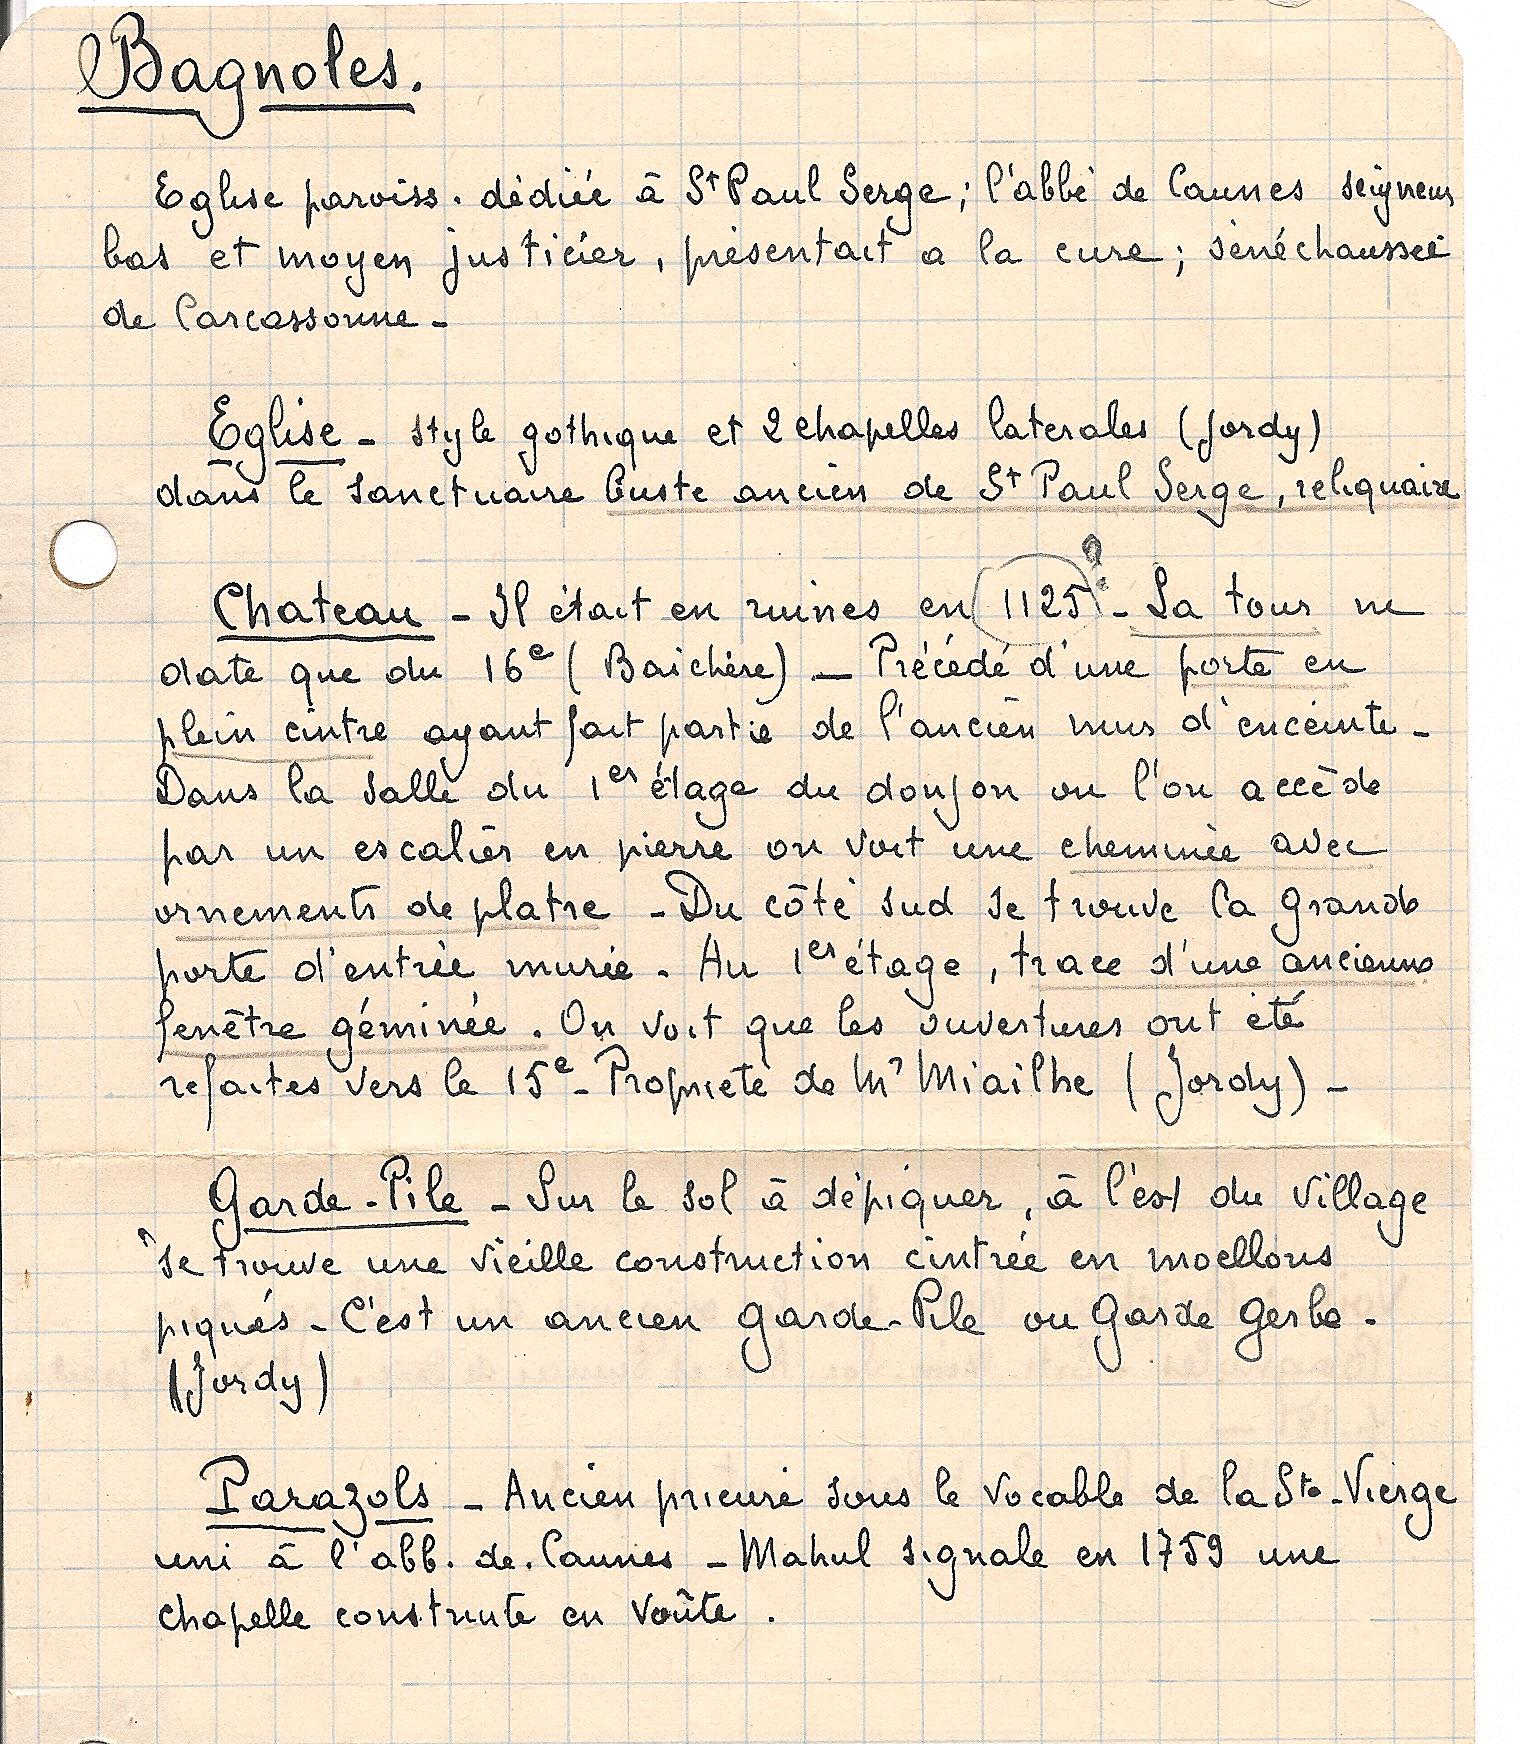 Bagnoles.
Eglise paroiss. dédiée à St Paul Serge ; l'abbé de Caunes seigneur
bas et moyen justicier, présentait a la cure ; sénéchaussée
de Carcassonne -
Eglise - style gothique et 2 chapelles laterales (Jordy)
dans le sanctuaire buste ancien de St Paul Serge, reliquaire
Chateau - Il était en ruines en 1125 ? - La tour ne
date que du 16e (Baichère) - Précédé d'une porte en
plein cintre ayant fait partie de l'ancien mur d'enceinte -
Dans la salle du 1er étage du donjon ou l'on accède
par un escalier en pierre on voit une cheminée avec
ornements de platre - Du côté sud se trouve la grande
porte d'entrée murée. Au 1er étage, trace d'une ancienne
fenêtre géminée. On voit que les ouvertures ont été
refaites vers le 15e - Propriété de Mr Miailhe (Jordy) -
Garde-Pile - Sur le sol à dépiquer, à l'est du village
se trouve une vieille construction cintrée en moellons
piqués - C'est un ancien Garde-Pile ou Garde Gerbe.
(Jordy)
Parazols - Ancien prieuré sous le vocable de la Ste-Vierge
uni à l'abb. de Caunes - Mahul signale en 1759 une
chapelle construite en voûte.